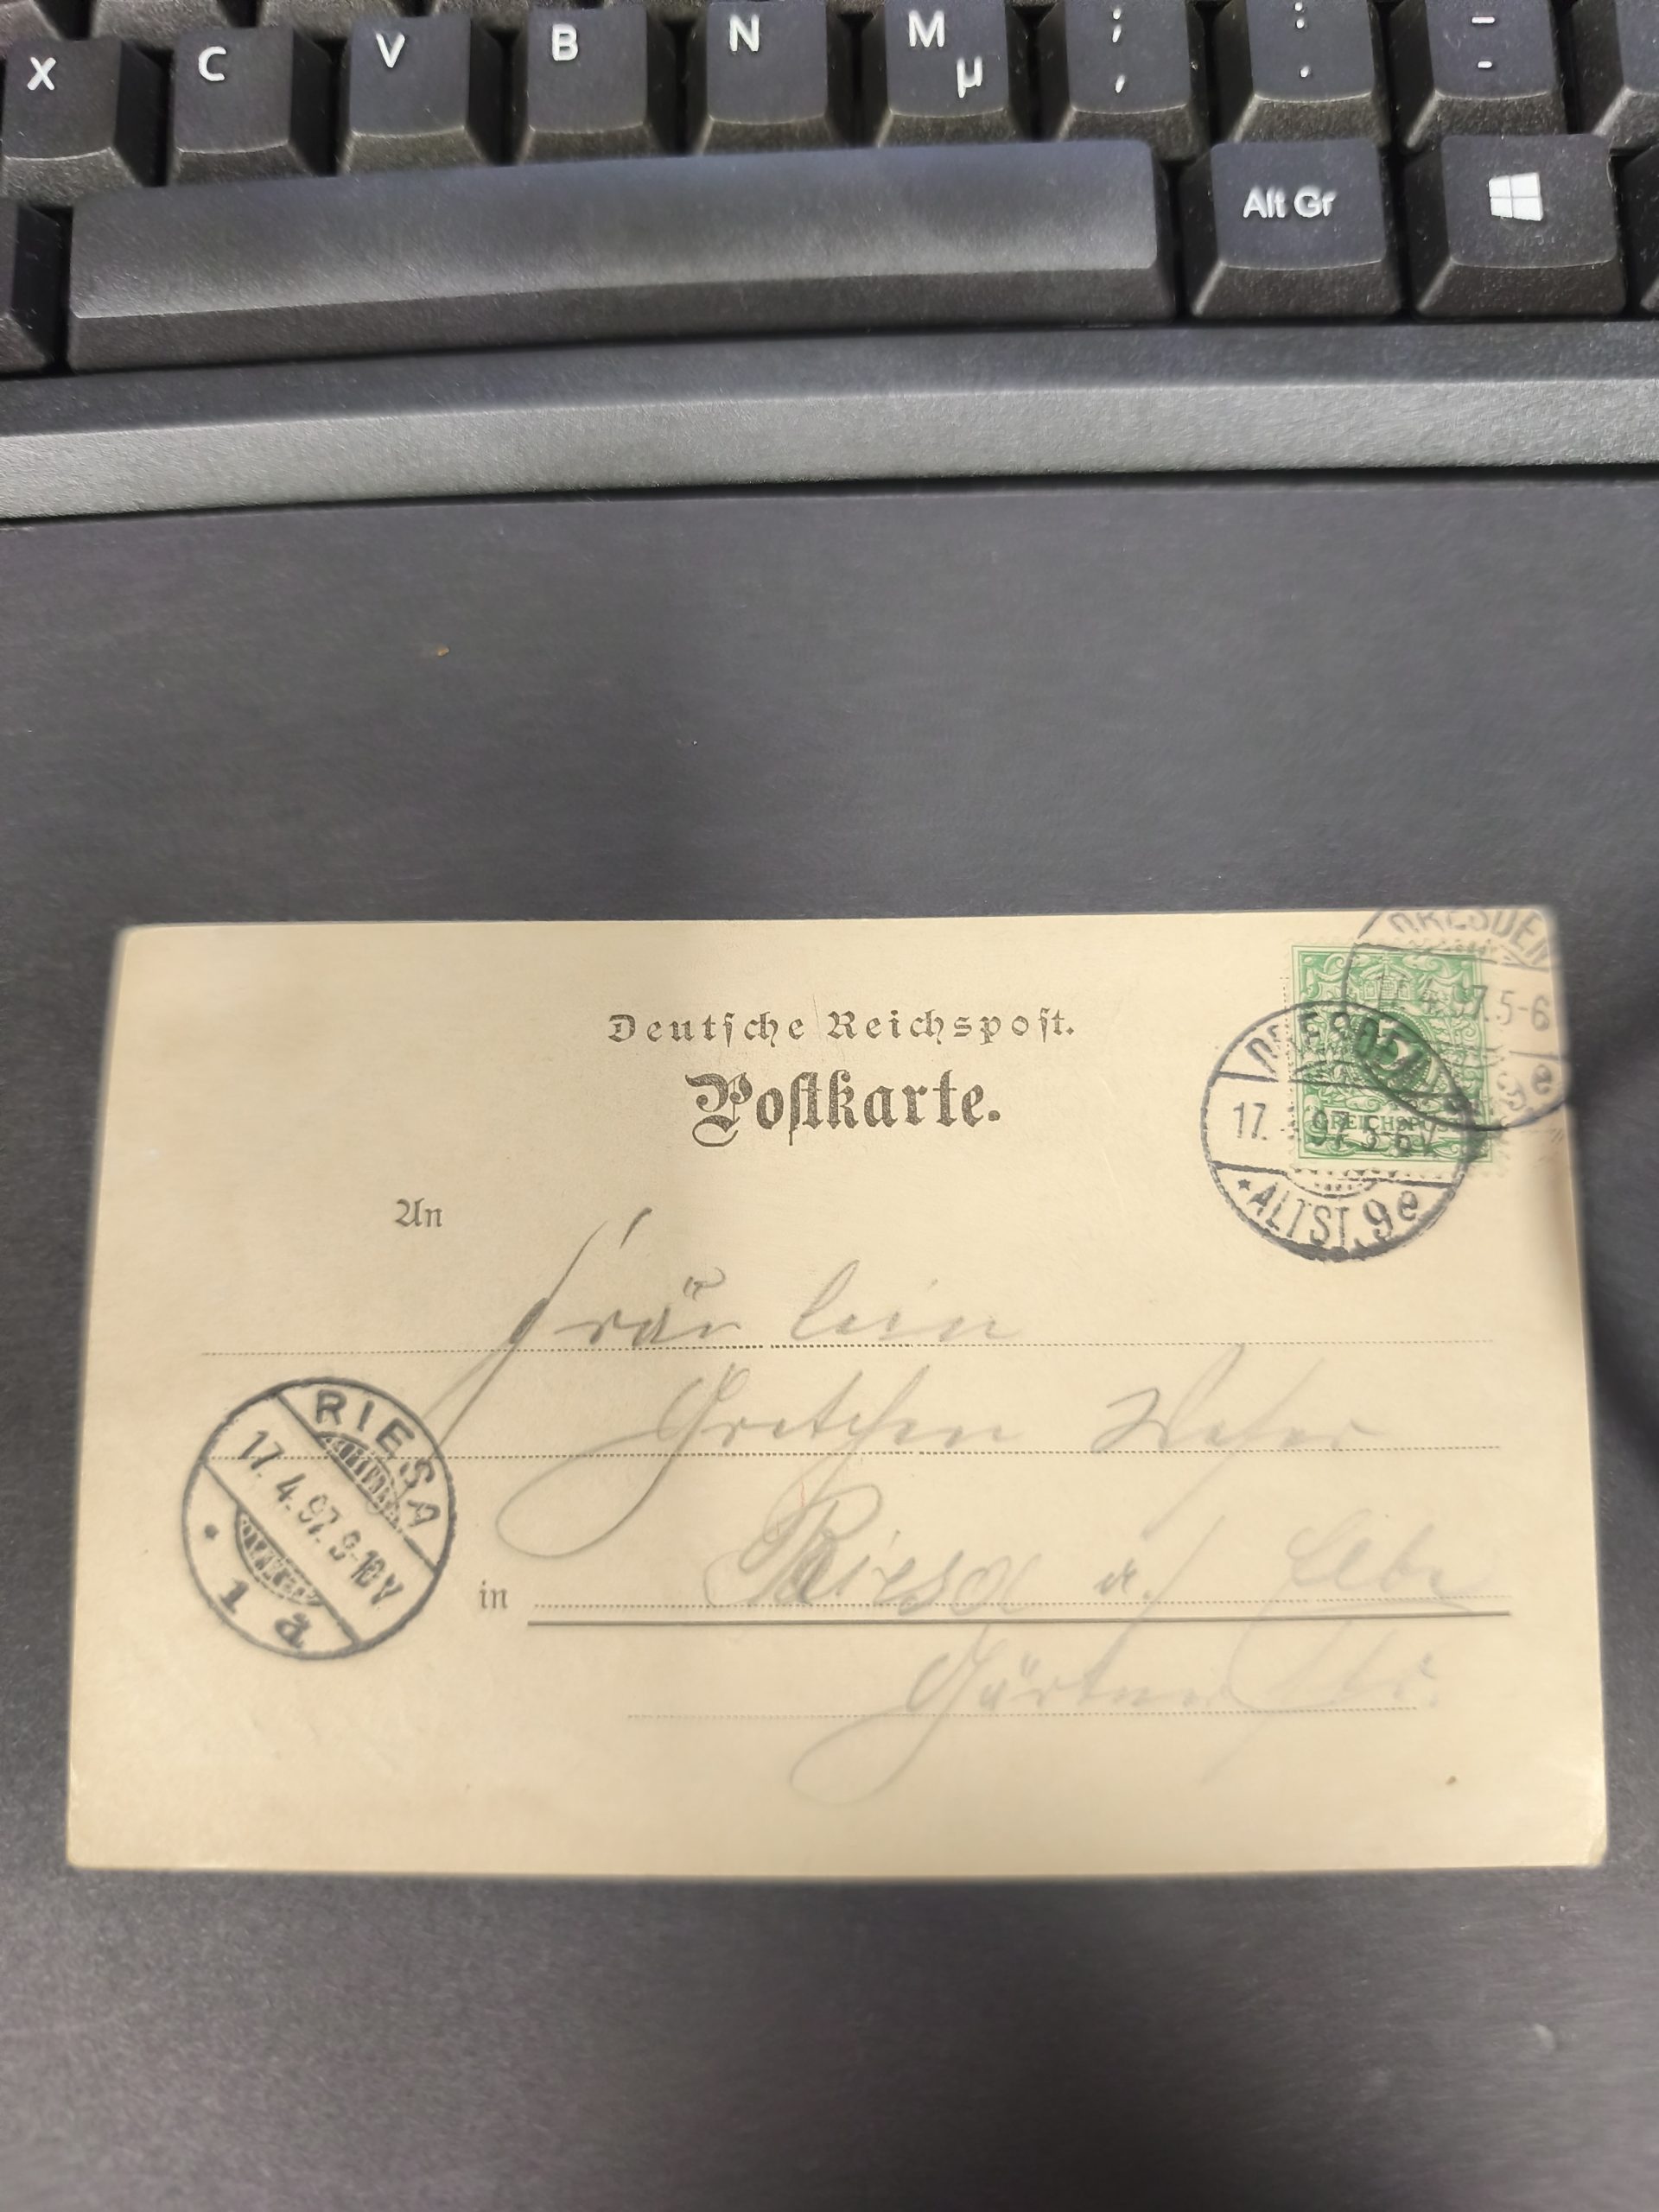 X C V B N M µ ; , : . _ -
Alt Gr
Deutsche Reichspost.
Postkarte.
DRESDEN
17.4.97.5-6
9e
DRESDEN
17. 97. 5-6V
* ALTST. 9e
REICHSPOST
An
Fräulein
Gretchen
RIESA
17.4.97.9-10V
* 1 a
in Riesa a./ Elbe
Gärtner Str.